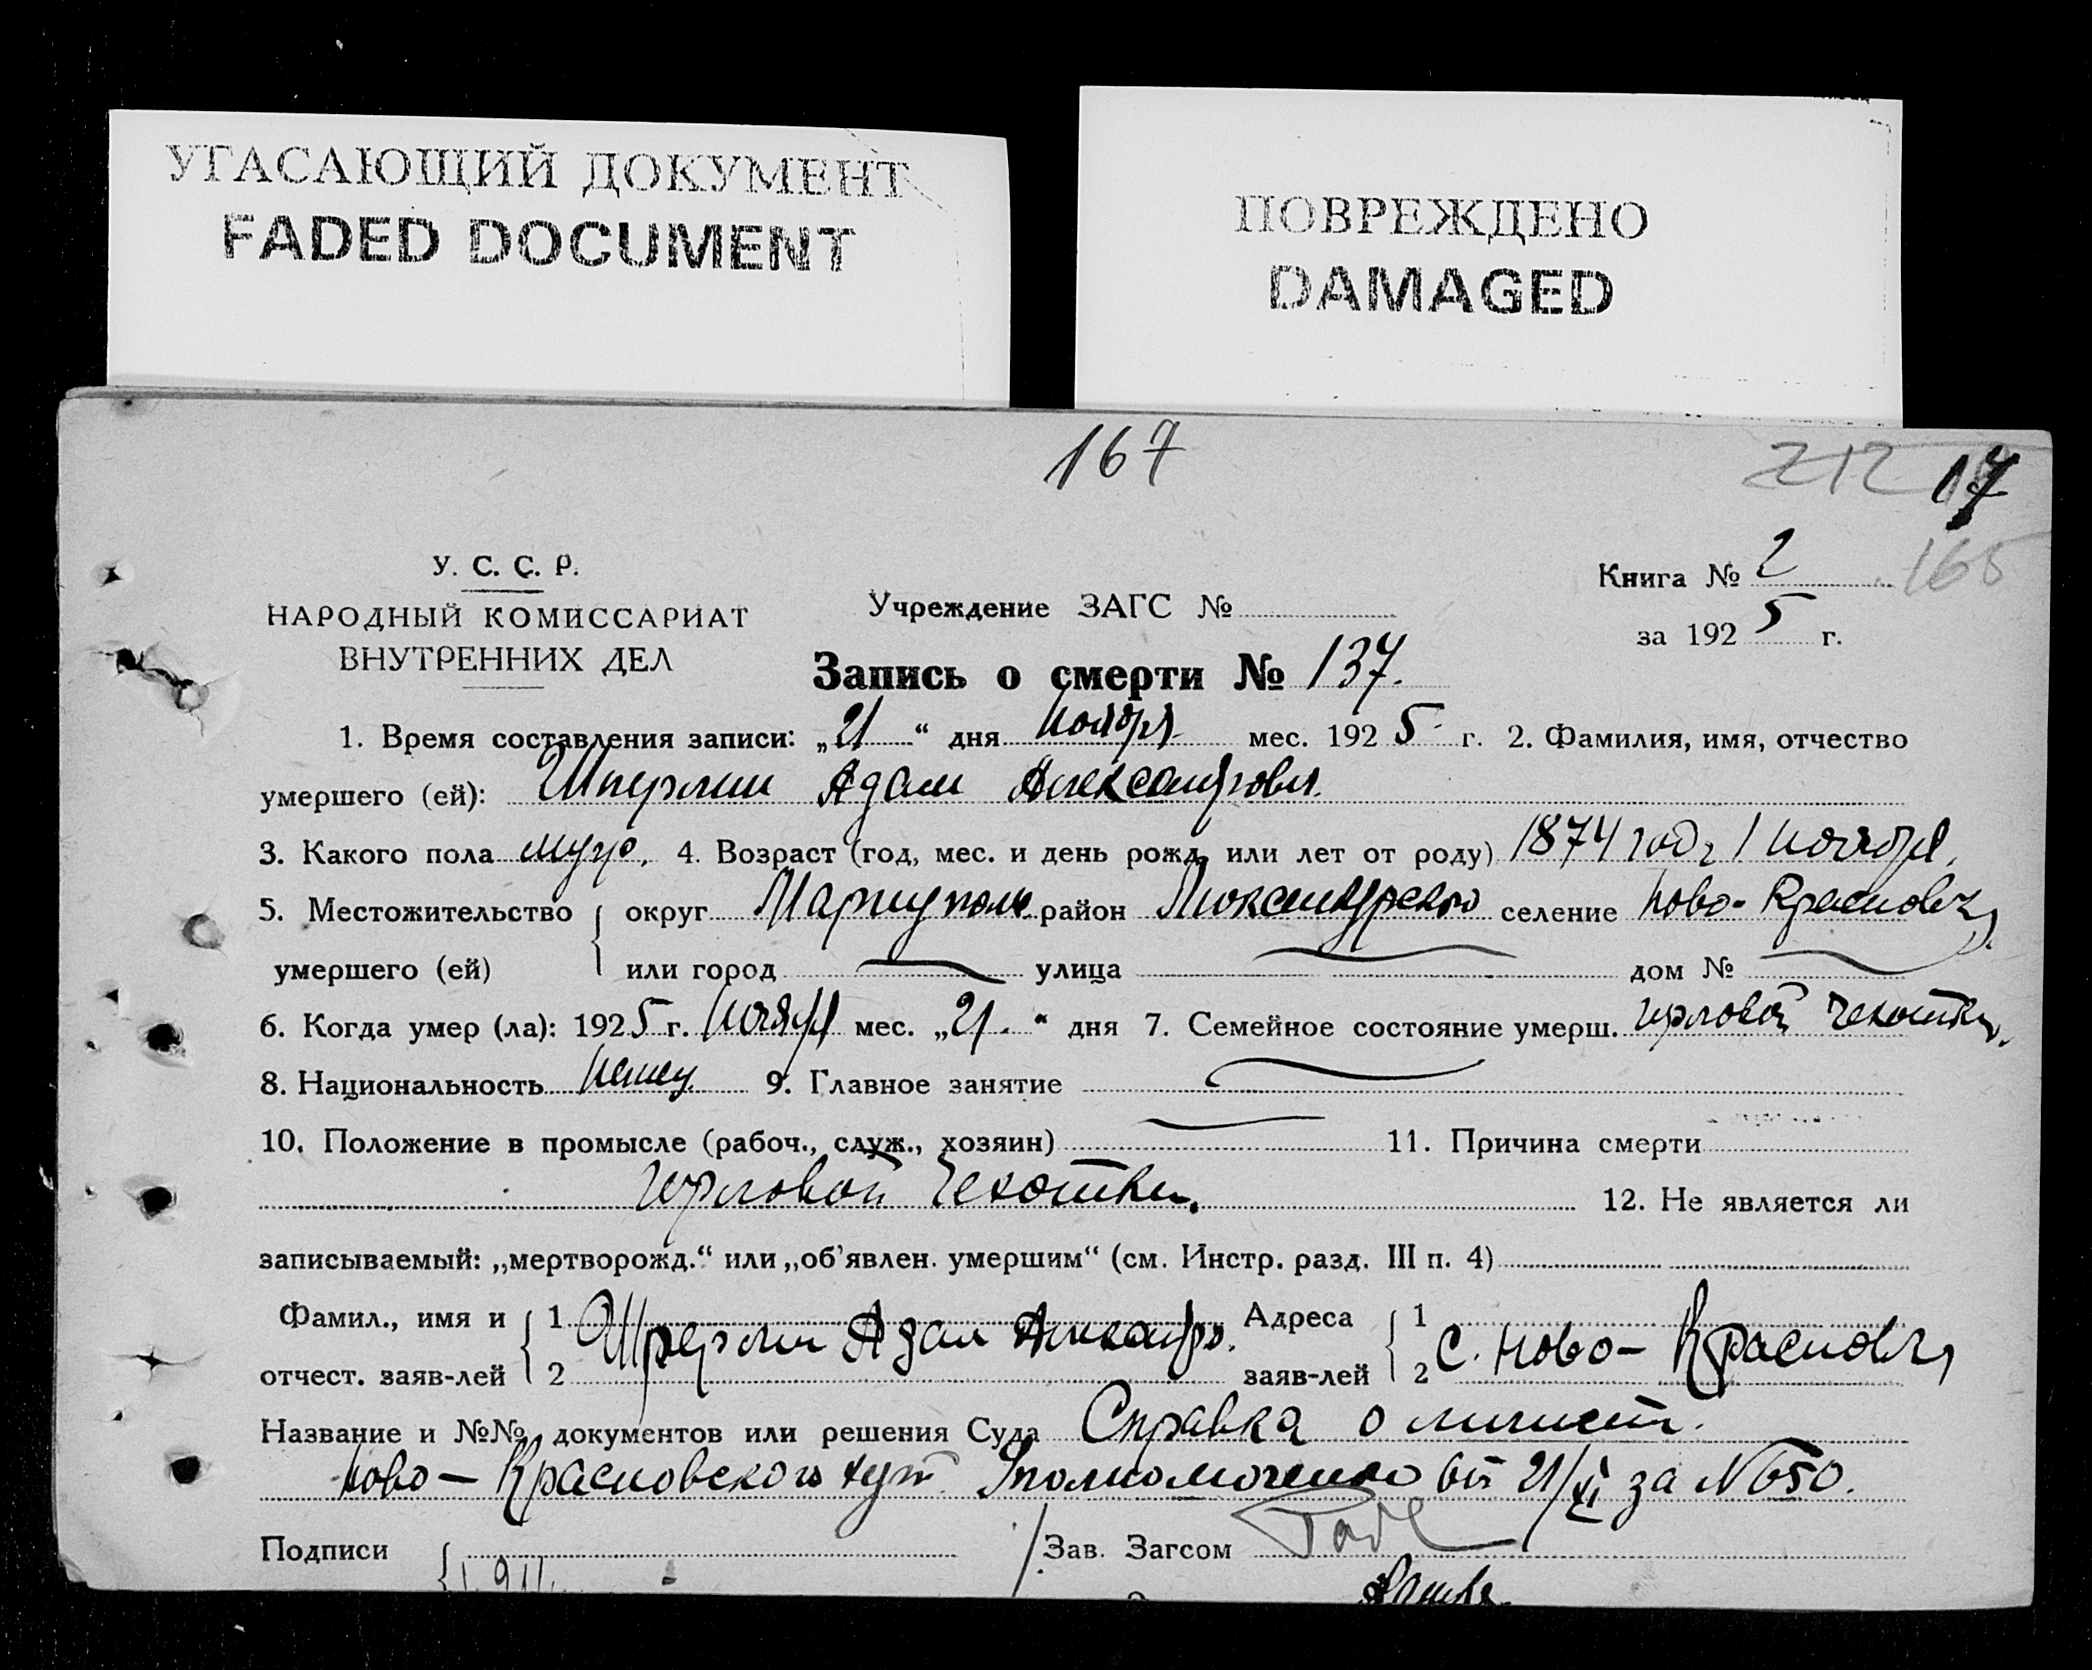 УГАСАЮЩИЙ ДОКУМЕНТ
FADED DOCUMENT
ПОВРЕЖДЕНО
DAMAGED
167
212 17
165
У. С. С. Р.
НАРОДНЫЙ КОМИССАРИАТ
ВНУТРЕННИХ ДЕЛ
Учреждение ЗАГС №
Книга № 2
за 1925 г.
Запись о смерти № 137.
1. Время составления записи: „21“ дня ноября мес. 1925 г. 2. Фамилия, имя, отчество
умершего (ей): Шперлин Адам Александрович
3. Какого пола муж. 4. Возраст (год, мес. и день рожд. или лет от роду) 1874 год 1 ноября.
5. Местожительство округ Мариуполь район селение Ново-Красновка
умершего (ей) или город улица дом №
6. Когда умер (ла): 1925 г. ноября мес. „21.“ дня 7. Семейное состояние умерш. горловой чехотки.
8. Национальность немец 9. Главное занятие
10. Положение в промысле (рабоч., служ., хозяин) 11. Причина смерти
горловой чехотки. 12. Не является ли
записываемый: „мертворожд.“ или „об'явлен. умершим“ (см. Инстр. разд. III п. 4)
Фамил., имя и 1 Шперлин Адам Александр. Адреса 1
отчест. заяв-лей 2 заяв-лей 2 с. Ново-Красновка
Название и №№ документов или решения Суда Справка о личност.
Ново-Красновского хут. от 21/XI за № 650.
Подписи Зав. Загсом